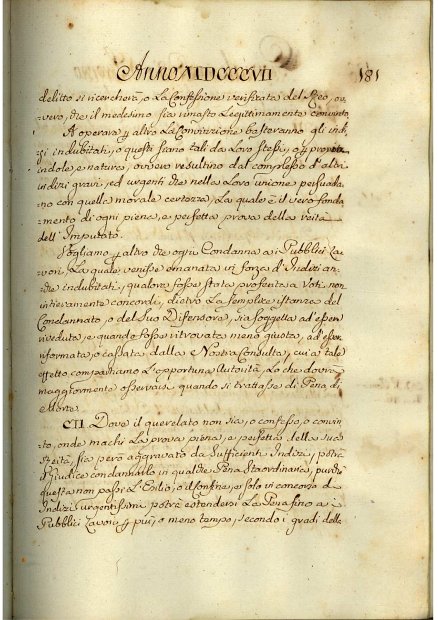 Anno MDCCCVII 181
delitto si ricercherà, o La Confessione verificata del Reo, ov,,
vero, che il medesimo sia rimasto Legittimamente convinto
A operare La Convinzione basteranno gli indi,,
zi indubitati, o questi siano tali da Loro stessi, o propria
indole, e natura, ovvero resultino dal complesso d'altri
indizi gravi, ed urgenti che nella Loro unione persuada,,
no con quella morale certezza, La quale è il vero fonda,,
mento di ogni piena, e perfetta prova della reità
dell'Imputato.
Vogliamo altro che ogni Condanna ai Pubblici La,,
vori, La quale venisse emanata in forza d'Indizi an,,
che indubitati, qualora fosse stata proferita a Voti non
intieramente concordi, dietro La semplice istanza del
Condannato, o del Suo Difensore, sia soggetta ad esser
riveduta, e quando fosse ritrovata meno giusta, ad esser
riformata, o cassata dalla Nostra Consulta, cui a tale
effetto compartiamo L'opportuna Autorità, Lo che dovrà
maggiormente osservarsi quando si trattasse di Pena di
Morte.
CII. Dove il querelato non sia, o confesso, o convin,,
to, onde manchi La prova piena, e perfetta della sua
Reità, sia però aggravato da Sufficienti Indizi, potrà
il Giudice condannarlo in qualche Pena Straordinaria, purchè
questa non passi L'Esilio, o il Confine, e solo in concorso d
Indizi urgentissimi potrà estendersi La Pena fino ai
Pubblici Lavori più, o meno tempo, secondo i gradi delle